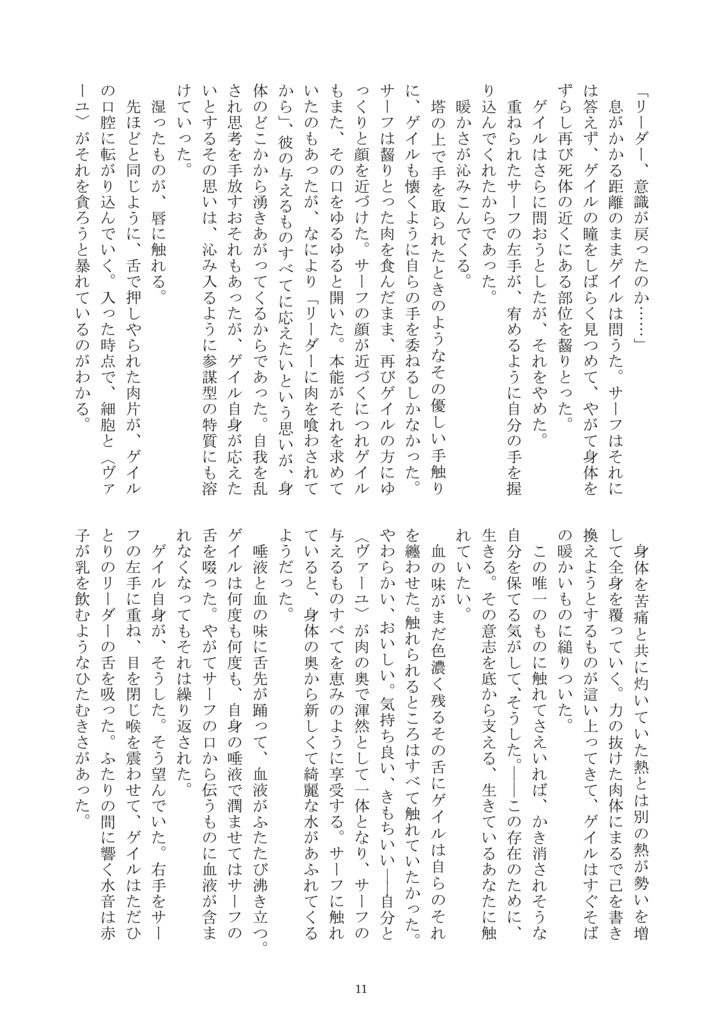 「リーダー、意識が戻ったのか……」
　息がかかる距離のままゲイルは問うた。サーフはそれに
は答えず、ゲイルの瞳をしばらく見つめて、やがて身体を
ずらし再び死体の近くにある部位を齧りとった。
　ゲイルはさらに問おうとしたが、それをやめた。
　重ねられたサーフの左手が、宥めるように自分の手を握
り込んでくれたからであった。
　暖かさが沁みこんでくる。
　塔の上で手を取られたときのようなその優しい手触り
に、ゲイルも懐くように自らの手を委ねるしかなかった。
サーフは齧りとった肉を食んだまま、再びゲイルの方にゆ
っくりと顔を近づけた。サーフの顔が近づくにつれゲイル
もまた、その口をゆるゆると開いた。本能がそれを求めて
いたのもあったが、なにより「リーダーに肉を喰わされて
から」、彼の与えるものすべてに応えたいという思いが、身
体のどこかから湧きあがってくるからであった。自我を乱
され思考を手放すおそれもあったが、ゲイル自身が応えた
いとするその思いは、沁み入るように参謀型の特質にも溶
けていった。
　湿ったものが、唇に触れる。
　先ほどと同じように、舌で押しやられた肉片が、ゲイル
の口腔に転がり込んでいく。入った時点で、細胞と〈ヴァ
ーユ〉がそれを貪ろうと暴れているのがわかる。
　身体を苦痛と共に灼いていた熱とは別の熱が勢いを増
して全身を覆っていく。力の抜けた肉体にまるで己を書き
換えようとするものが這い上ってきて、ゲイルはすぐそば
の暖かいものに縋りついた。
　この唯一のものに触れてさえいれば、かき消されそうな
自分を保てる気がして、そうした。――この存在のために、
生きる。その意志を底から支える、生きているあなたに触
れていたい。
　血の味がまだ色濃く残るその舌にゲイルは自らのそれ
を纏わせた。触れられるところはすべて触れていたかった。
やわらかい、おいしい。気持ち良い、きもちいい――自分と
〈ヴァーユ〉が肉の奥で渾然として一体となり、サーフの
与えるものすべてを恵みのように享受する。サーフに触れ
ていると、身体の奥から新しくて綺麗な水があふれてくる
ようだった。
　唾液と血の味に舌先が踊って、血液がふたたび沸き立つ。
ゲイルは何度も何度も、自身の唾液で潤ませてはサーフの
舌を啜った。やがてサーフの口から伝うものに血液が含ま
れなくなってもそれは繰り返された。
　ゲイル自身が、そうした。そう望んでいた。右手をサー
フの左手に重ね、目を閉じ喉を震わせて、ゲイルはただひ
とりのリーダーの舌を吸った。ふたりの間に響く水音は赤
子が乳を飲むようなひたむきさがあった。
11